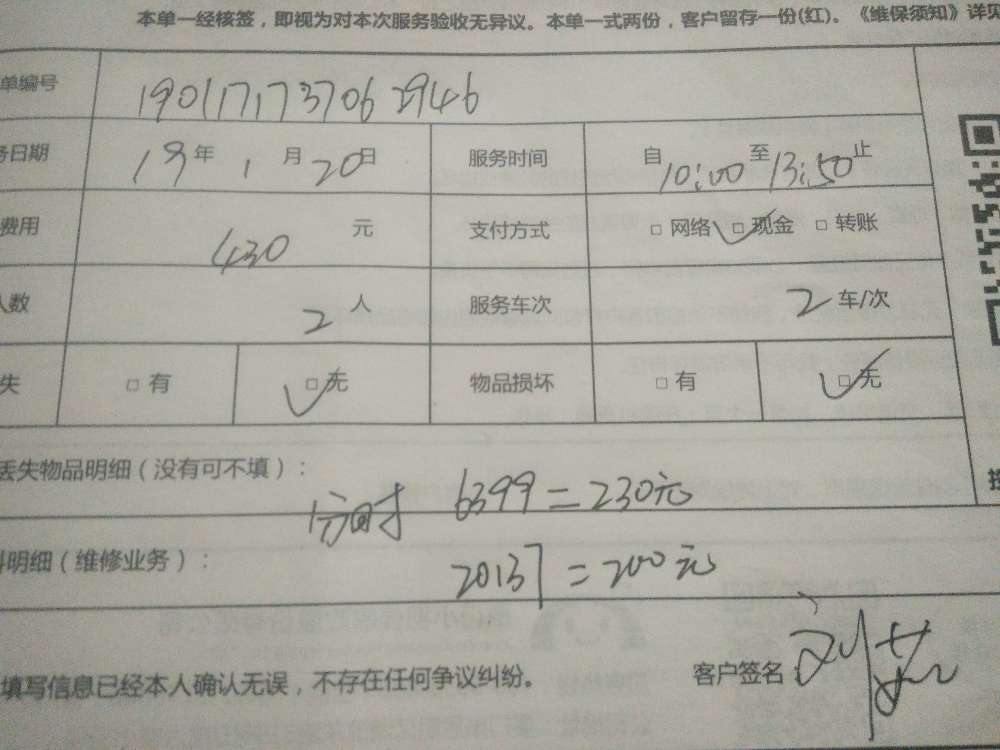 本单一经核签，即视为对本次服务验收无异议。本单一式两份，客户留存一份(红)。《维保须知》详见
单编号 1901171737062946
务日期 19年1月20日 服务时间 自10:00至13:50止
费用 430元 支付方式 □网络 □现金 □转账
人数 2人 服务车次 2车/次
失 □有 □无 物品损坏 □有 □无
丢失物品明细（没有可不填）：
6399=230元
料明细（维修业务）：
20137=200元
填写信息已经本人确认无误，不存在任何争议纠纷。 客户签名：刘